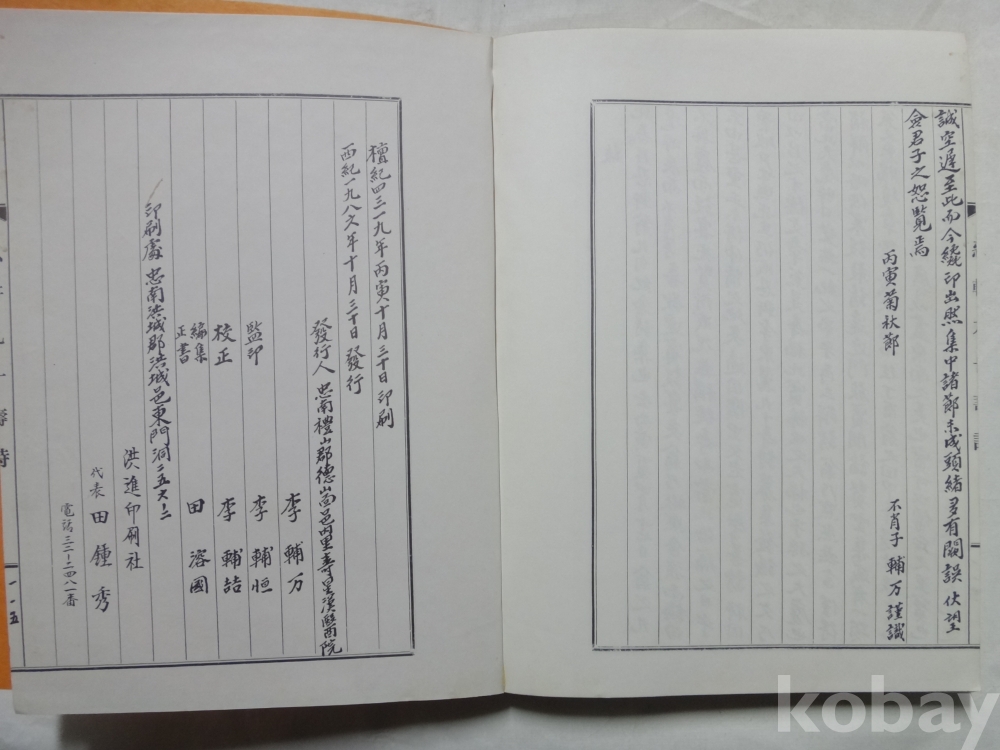 誠空遲至此而今纔印出然集中諸節未成頭緒多有闕誤伏望
僉君子之恕覽焉
丙寅菊秋節
不肖子 輔万 謹識
檀紀四三一九年丙寅十月三十日印刷
西紀一九八六年十月三十日發行
發行人 忠南禮山郡德山面邑內里壽星漢醫院
李輔万
監印 李輔恒
校正 李輔喆
編集
正書 田溶國
印刷處 忠南洪城郡洪城邑東門洞二五六ー二
洪進印刷社
代表 田鍾秀
電話三二ー二四八一番
一一五
kobay